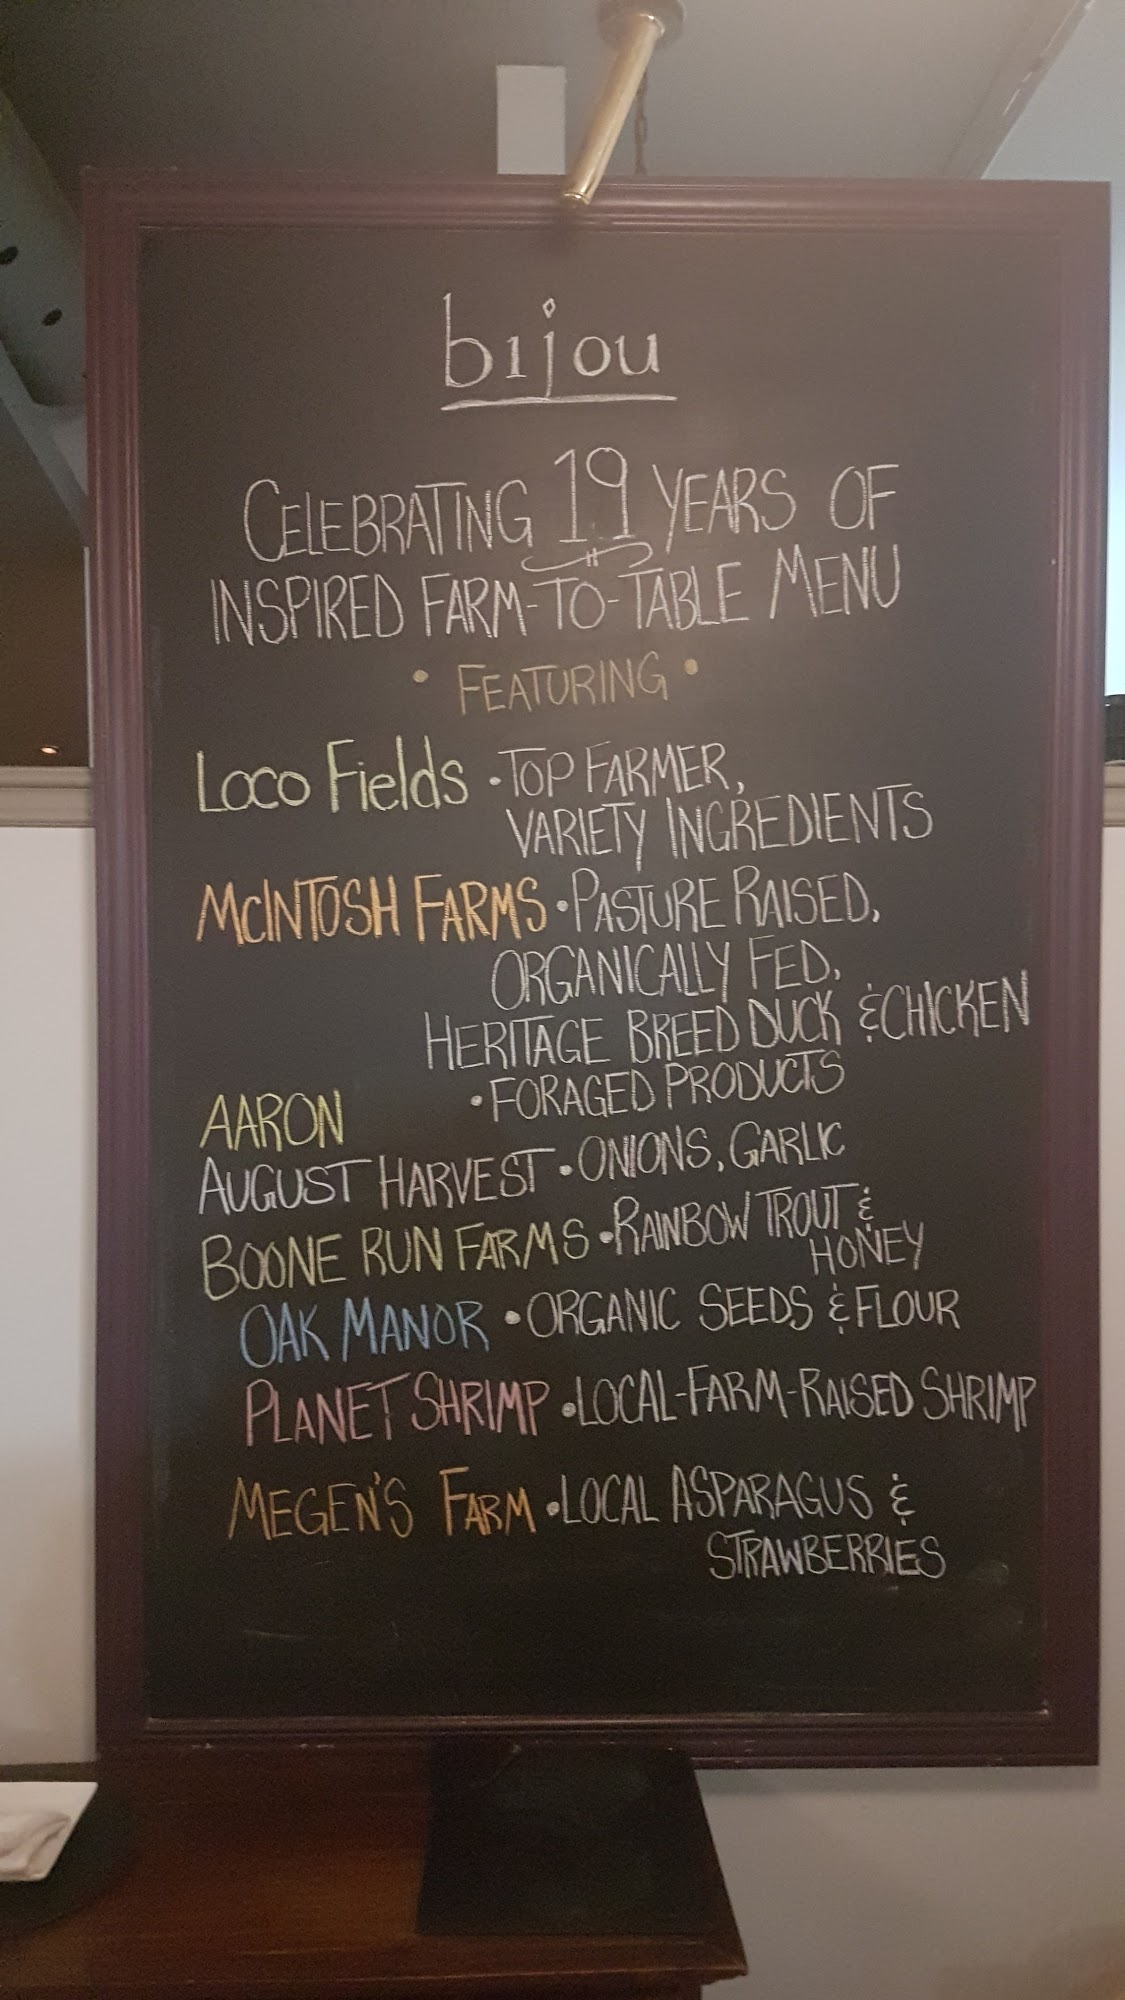 bijou
CELEBRATING 19 YEARS OF
INSPIRED FARM-TO-TABLE MENU
• FEATURING •
LOCO FIELDS • TOP FARMER,
VARIETY INGREDIENTS
MCINTOSH FARMS • PASTURE RAISED,
ORGANICALLY FED,
HERITAGE BREED DUCK & CHICKEN
AARON • FORAGED PRODUCTS
AUGUST HARVEST • ONIONS, GARLIC
BOONE RUN FARMS • RAINBOW TROUT &
HONEY
OAK MANOR • ORGANIC SEEDS & FLOUR
PLANET SHRIMP • LOCAL-FARM-RAISED SHRIMP
MEGEN'S FARM • LOCAL ASPARAGUS &
STRAWBERRIES